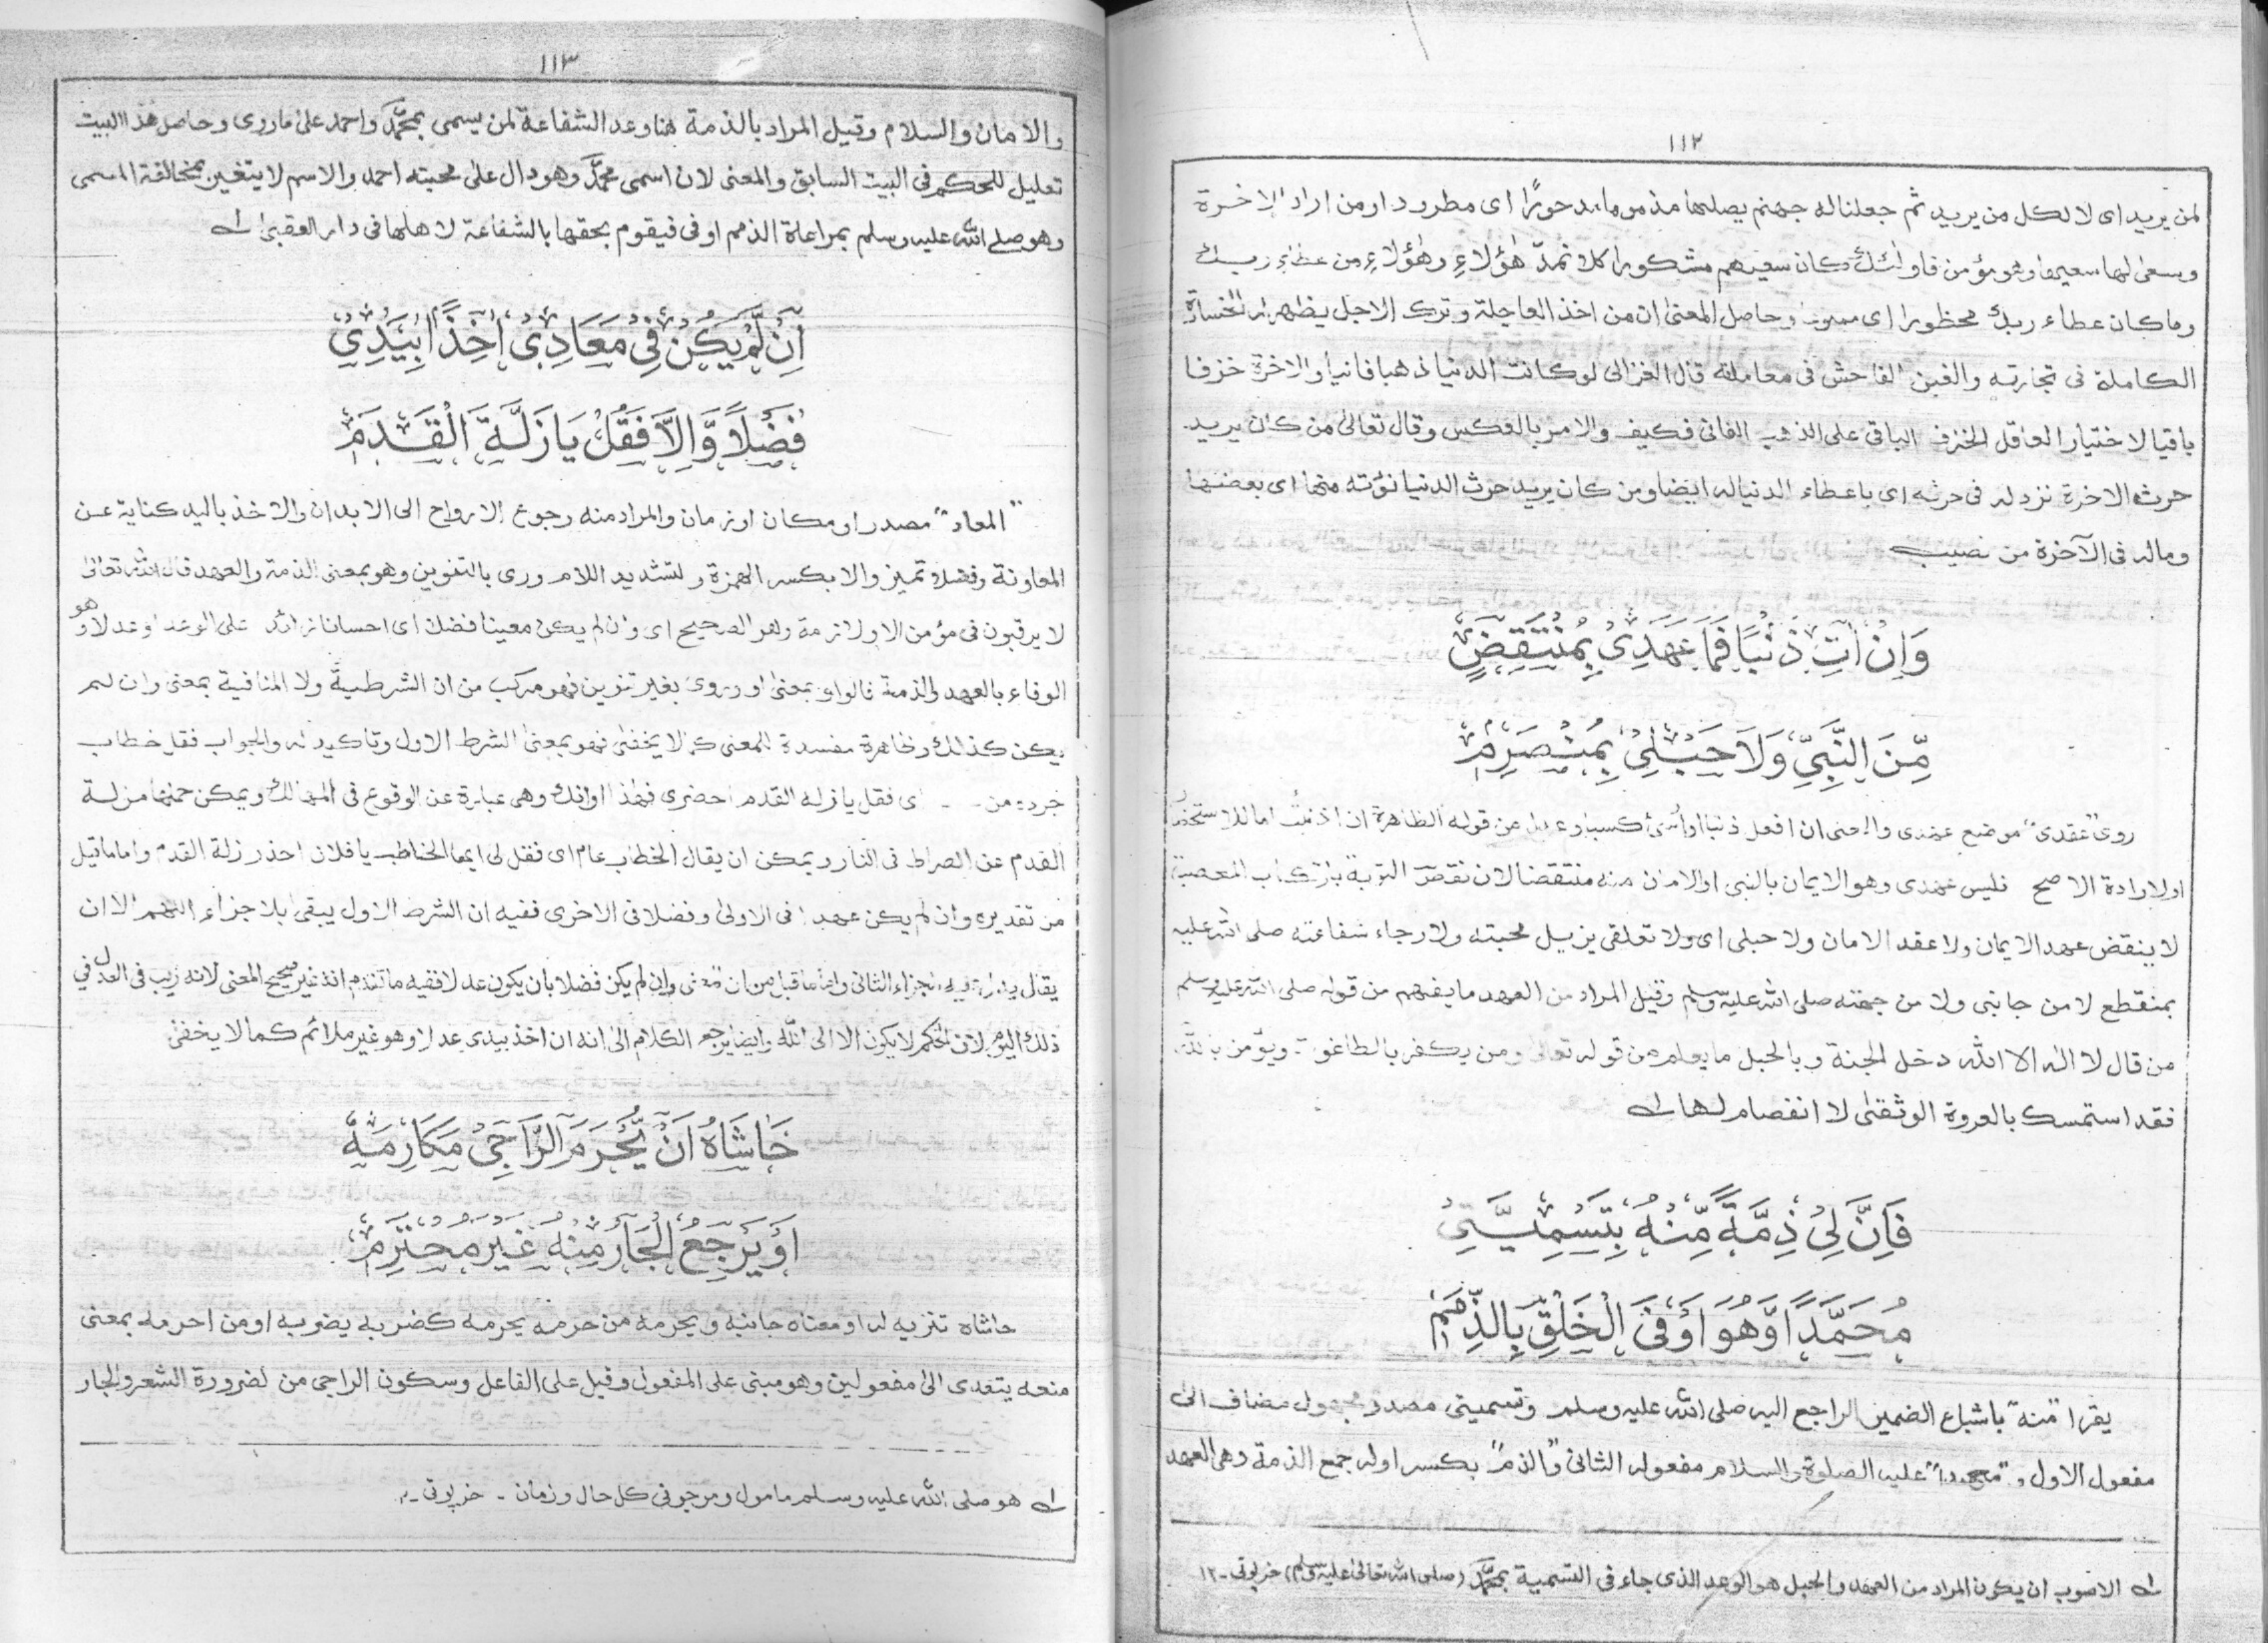 ١١٢
لمن يريد اى لا لكل من يريد ثم جعلنا له جهنم يصلىها مذموما مدحورًا اى مطرودا ومن اراد الاخرة
وسعىٰ لها سعيها وهو مؤمن فاولٰئك كان سعيهم مشكورا كلا نمدّ هٰؤلاءِ وهٰؤلاءِ من عطاء ربك
وما كان عطاء ربك محظورا اى وحاصل المعنىٰ ان من اخذ العاجلة وترك الاجل يظهر له الخسارة
الكاملة فى تجارته والغبن الفاحش فى معاملته قال الغزالى لو كانت الدنيا ذهبا فانيا والاخرة خزفا
باقيا لاختيار العاقل الخزف الباقى على الذهب الفانى فكيف والامر بالعكس وقال تعالىٰ من كان يريد
حرث الاخرة نزد له فى حرثه اى باعطاء الدنيا له ايضا ومن كان يريد حرث الدنيا نؤته منها اى بعضها
وماله فى الآخرة من نصيب
وَاِنْ اٰتِ ذَنْبًا فَمَا عَهْدِىْ بِمُنْتَقِضٍ
مِّنَ النَّبِىِّ وَلَا حَبْلِىْ بِمُنْصَرِمٖ
روى "عقدى" موضع عهدى والمعنى ان افعل ذنبا او من قوله الظاهرة ان اذنبت اما للاستحضار
او لارادة الاصح فليس عهدى وهو الايمان بالنبى او الامان منه منتقضا لان نقض التوبة بارتكاب المعصية
لا ينقض عهد الايمان ولا عقد الامان ولا حبلى اى ولا تعلقى بزيل محبته ولا رجاء شفاعته صلى الله عليه
بمنقطع لا من جانبى ولا من جهته صلى الله عليه وسلم وقيل المراد من العهد ما يفهم من قوله صلى الله عليه وسلم
من قال لا اله الا الله دخل الجنة وبالحبل ما يعلم من قوله تعالىٰ ومن يكفر بالطاغوت ويؤمن بالله
فقد استمسك بالعروة الوثقىٰ لا انفصام لها ١ـه
فَاِنَّ لِىْ ذِمَّةً مِّنْهُ بِتَسْمِيَتِىْ
مُحَمَّدًا وَّهُوَ اَوْفَى الْخَلْقِ بِالذِّمَمٖ
يقرا "منه" باشباع الضمير الراجع اليه صلى الله عليه وسلم وتسميتى مصدر مجهول مضاف الىٰ
مفعول الاول و"محمدا" عليه الصلوة والسلام مفعوله الثانى و"الذمم" بكسر اوله جمع الذمة وهى العهد
١ـه الاصوب ان يكون المراد من العهد والحبل هو الوعد الذى جاء فى التسمية بمحمَّد (صلى الله تعالىٰ عليه وسلم) خرپوتى ـ ١٢
١١٣
والامان والسلام وقيل المراد بالذمة هنا وعد الشفاعة لمن يسمى بمحمَّد واحمد علىٰ ما روى وحاصل هٰذا البيت
تعليل للحكم فى البيت السابق والمعنى لان اسمى محمَّد وهو دال علىٰ محبته احمد والاسم لا يتغير بمخالفة المسمى
وهو صلى الله عليه وسلم بمراعاة الذمم اوفى فيقوم بحقها بالشفاعة لاهلها فى دار العقبىٰ ١ـه
اِنْ لَّمْ يَكُنْ فِىْ مَعَادِىْ اٰخِذًا بِيَدِىْ
فَضْلًا وَّاِلَّا فَقُلْ يَا زَلَّةَ الْقَدَمٖ
"المعاد" مصدر او مكان او زمان والمراد منه رجوع الارواح الى الابدان والاخذ باليد كناية عن
المعاونة وفضلا تميز والا بكسر الهمزة وتشديد اللام روى بالتنوين وهو بمعنى الذمة والعهد قال الله تعالىٰ
لا يرقبون فى مؤمن الا ولا ذمة وهو الصحيح اى وان لم يكن معينا فضلا اى احسانا زائدا على الوعد او عدلا وهو
الوفاء بالعهد والذمة فالواو بمعنىٰ او وروى بغير تنوين فهو مركب من ان الشرطية ولا النافية بمعنىٰ وان لم
يكن كذالك وظاهرة مفسدة المعنى كما لا يخفىٰ فهو بمعنى الشرط الاول وتاكيد له والجواب فقل خطاب
جرده من اى فقل يا زلة القدم احضرى فهٰذا اوانك وهى عبارة عن الوقوع فى المهالك ويمكن حملها مزلة
القدم عن الصراط فى النار ويمكن ان يقال الخطاب عام اى فقل لى ايها المخاطب يا فلان احذر زلة القدم واما ما قيل
من تقديره وان لم يكن عهدا فى الاولىٰ وفضلا فى الاخرى ففيه ان الشرط الاول يبقىٰ بلا جزاء اللهم الا ان
يقال الجزاء الثانى واما ما قيل من ان معنى وان لم يكن فضلا بان يكون عدلا ففيه ما تقدم انه غير صحيح المعنى لانه ريب فى العدل فى
ذلك اليوم لان الحكم لا يكون الا الى الله وايضا يرجع الكلام الىٰ انه ان اخذ بيدى عدلا وهو غير ملائم كما لا يخفىٰ
حَاشَاهُ اَنْ يُّحْرَمَ الرَّاجِىْ مَكَارِمَهٗ
اَوْ يَرْجِعَ الْجَارُ مِنْهُ غَيْرَ مُحْتَرَمٖ
حاشاه تنزيه له او معناه جانبه ويحرمه من حرمه يحرمه كضربه يضربه او من احرمه بمعنى
منعه يتعدى الىٰ مفعولين وهو مبنى على المفعول وقيل على الفاعل وسكون الراجى من لضرورة الشعر والجار
١ـه هو صلى الله عليه وسلم مامول ومرجو فى كل حال وزمان ـ خرپوتى ـ